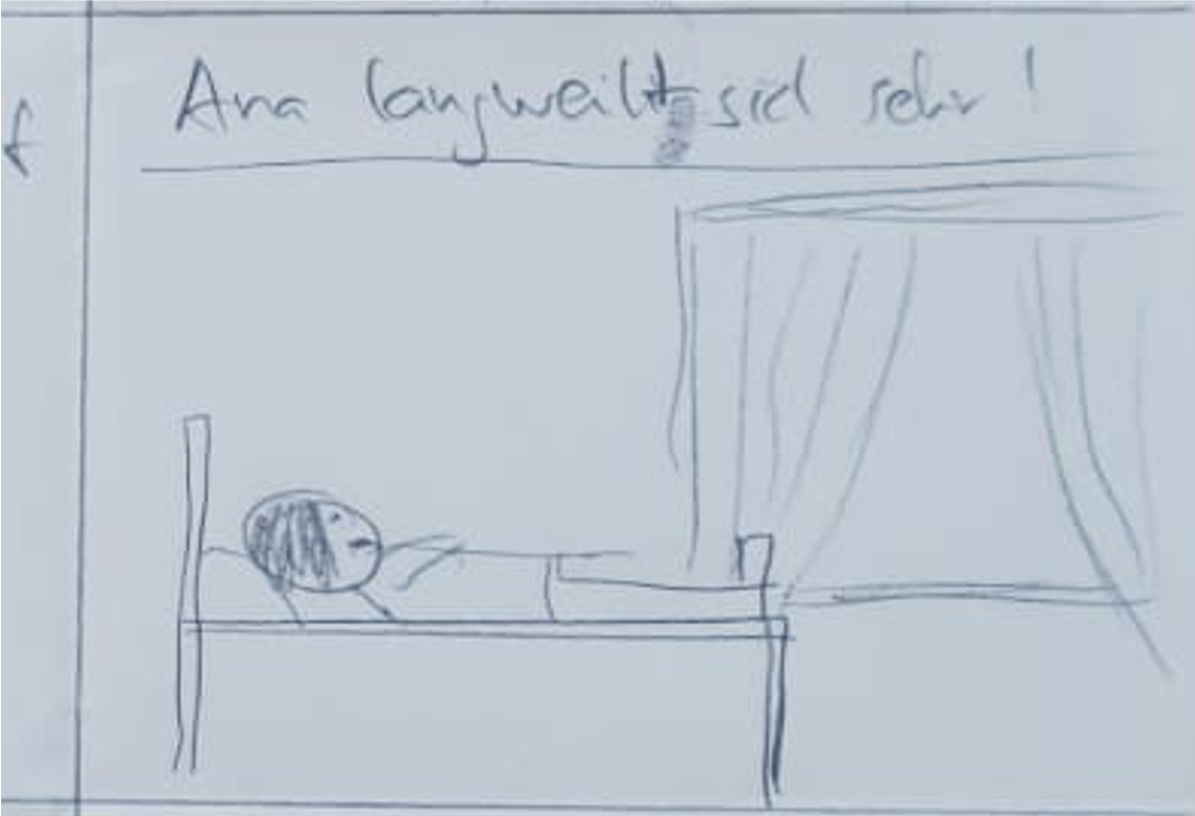 Ana langweilt sich sehr!
f